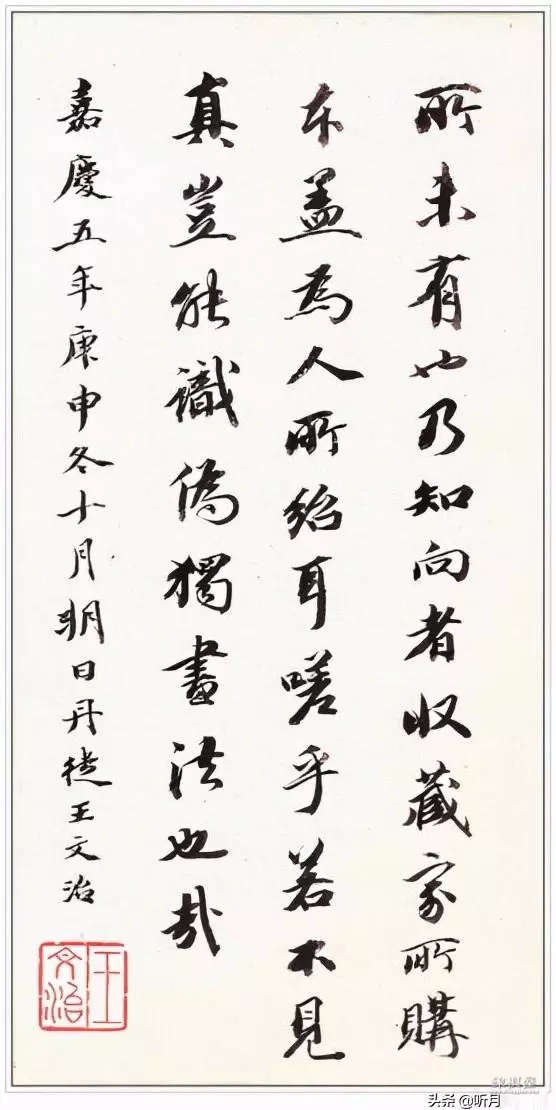 所未有也乃知向者收藏家所購
本盖為人所紿耳嗟乎若不見
真豈能識偽獨畫法也哉
嘉慶五年庚申冬十月朔日丹徒王文治
王文治
头条 @听月